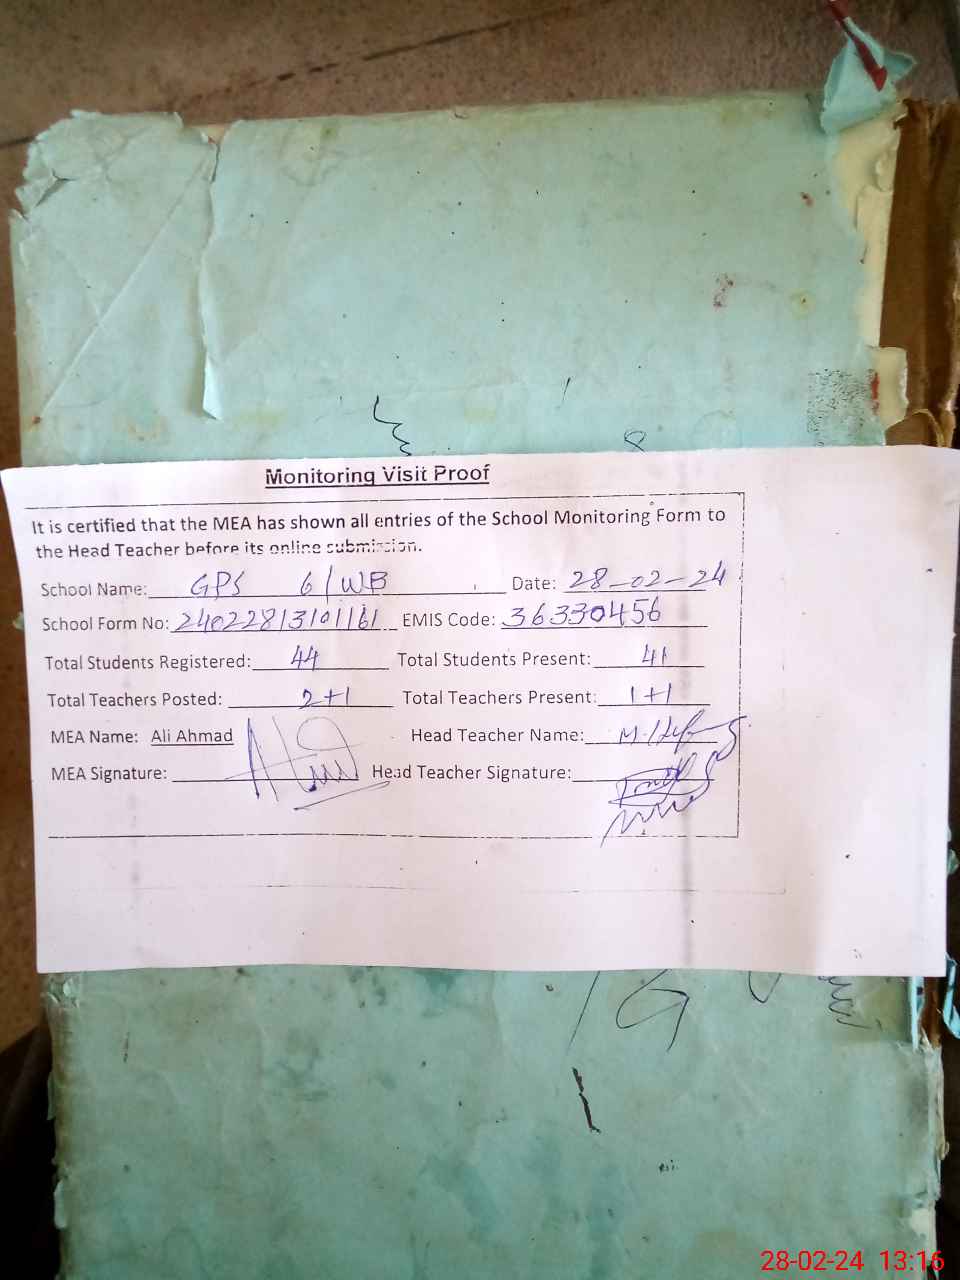 Monitoring Visit Proof
It is certified that the MEA has shown all entries of the School Monitoring Form to
the Head Teacher before its online submission.
School Name: GPS 6/WB Date: 28-02-24
School Form No: 2402281310161 EMIS Code: 36330456
Total Students Registered: 44 Total Students Present: 41
Total Teachers Posted: 2+1 Total Teachers Present: 1+1
MEA Name: Ali Ahmad Head Teacher Name: M.
MEA Signature: Head Teacher Signature:
28-02-24 13:16